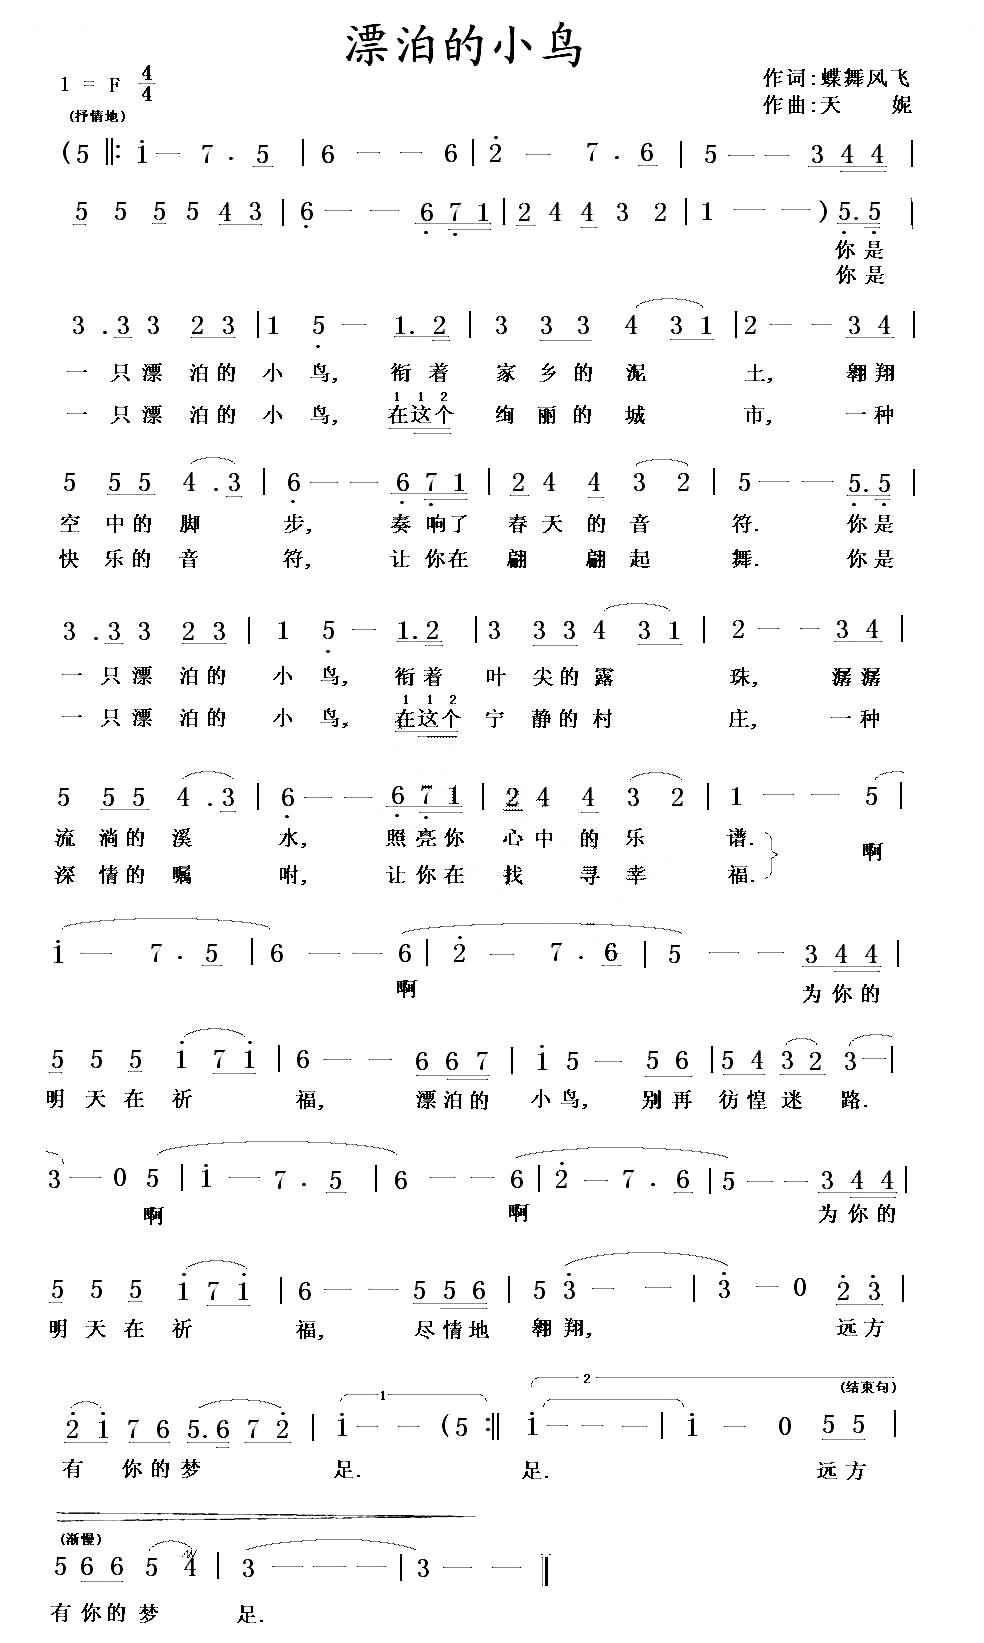 漂泊的小鸟
1 = F 4/4
作词:蝶舞风飞
作曲:天 妮
(抒情地)
(5 ‖: i — 7 . 5 | 6 — — 6 | 2 — 7 . 6 | 5 — — 3 4 4 |
5 5 5 5 4 3 | 6 — — 6 7 1 | 2 4 4 3 2 | 1 — — ) 5. 5 |
你是
你是
3 . 3 3 2 3 | 1 5 — 1. 2 | 3 3 3 4 3 1 | 2 — — 3 4 |
一 只漂 泊的 小 鸟, 衔着 家 乡的 泥 土, 翱翔
1 1 2
一 只漂 泊的 小 鸟, 在这个 绚 丽的 城 市, 一种
5 5 5 4 . 3 | 6 — — 6 7 1 | 2 4 4 3 2 | 5 — — 5. 5 |
空 中的 脚 步, 奏响了 春 天 的 音 符. 你是
快 乐的 音 符, 让你在 翩 翩 起 舞. 你是
3 . 3 3 2 3 | 1 5 — 1. 2 | 3 3 3 4 3 1 | 2 — — 3 4 |
一 只漂 泊的 小 鸟, 衔着 叶 尖的露 珠, 潺潺
1 1 2
一 只漂 泊的 小 鸟, 在这个 宁 静的村 庄, 一种
5 5 5 4 . 3 | 6 — — 6 7 1 | 2 4 4 3 2 | 1 — — 5 |
流 淌的 溪 水, 照亮你 心 中 的 乐 谱.
啊
深 情的 嘱 咐, 让你在 找 寻 幸 福.
i — 7 . 5 | 6 — — 6 | 2 — 7 . 6 | 5 — — 3 4 4 |
啊 为你的
5 5 5 i 7 i | 6 — — 6 6 7 | i 5 — 5 6 | 5 4 3 2 3 — |
明 天 在 祈 福, 漂泊的 小鸟, 别再 彷徨 迷 路.
3 — 0 5 | i — 7 . 5 | 6 — — 6 | 2 — 7 . 6 | 5 — — 3 4 4 |
啊 啊 为你的
5 5 5 i 7 i | 6 — — 5 5 6 | 5 3 — — | 3 — 0 2 3 |
明 天 在 祈 福, 尽情地 翱翔, 远方
1 2
(结束句)
2 i 7 6 5. 6 7 2 | i — — (5 :‖ i — — | i — 0 5 5 |
有 你的梦 足. 足. 远方
(渐慢)
5 6 6 5 4 | 3 — — — | 3 — — ‖
有你的 梦 足.